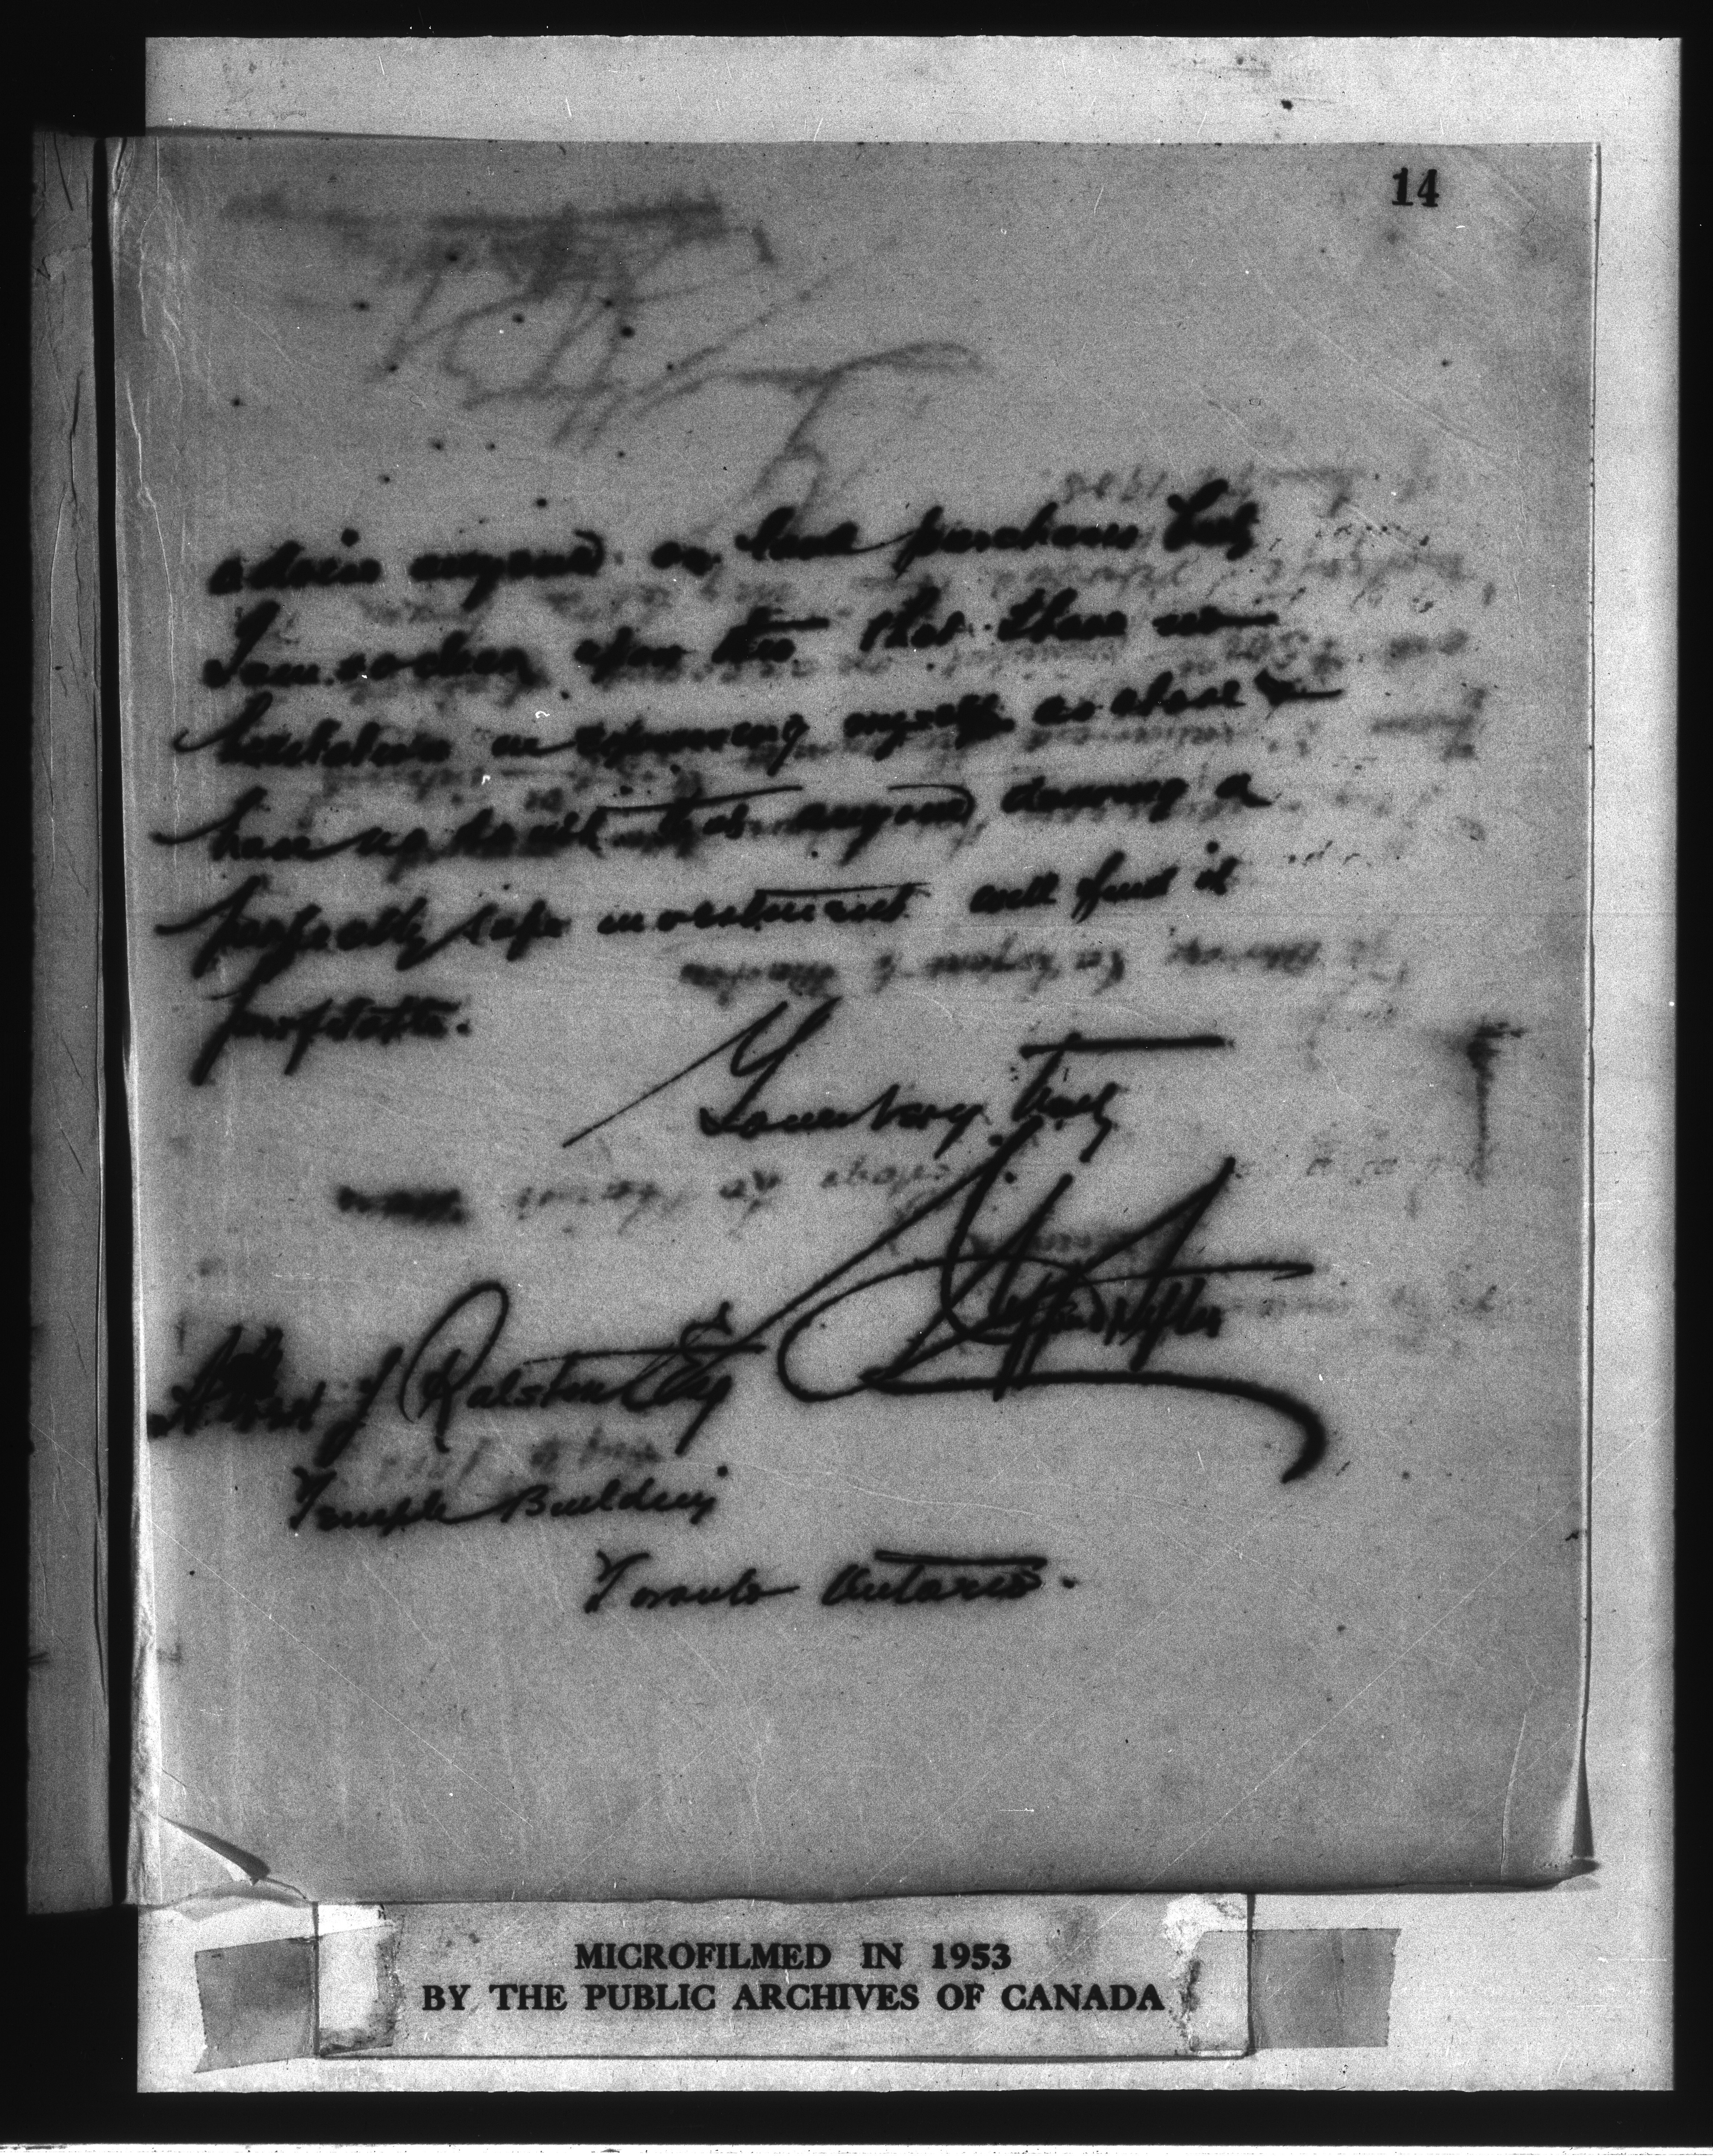 14
advise anyone on land purchases but
I am so clear upon this that I have no
hesitation in expressing myself as above &
have no doubt that anyone desiring a
perfectly safe investment will find it
profitable.
Yours very truly
Clifford Sifton
J Ralston Esq
Temple Building
Toronto Ontario.
MICROFILMED IN 1953
BY THE PUBLIC ARCHIVES OF CANADA